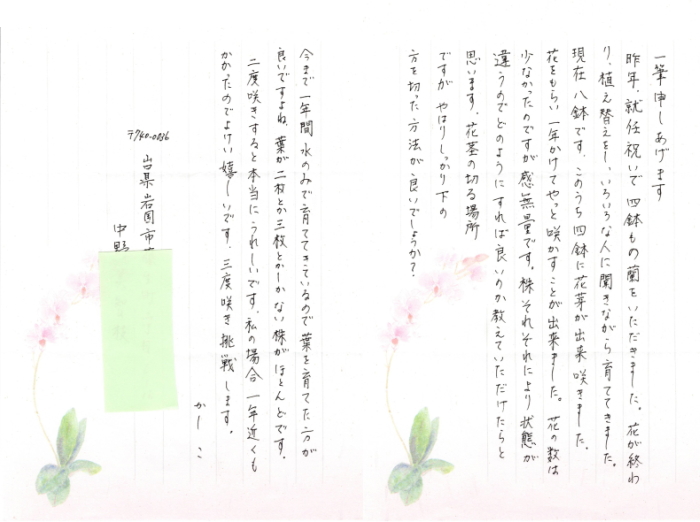 一筆申しあげます
昨年、就任祝いで四鉢もの蘭をいただきました。花が終わ
り、植え替えをし、いろいろな人に聞きながら育ててきました。
現在八鉢です。このうち四鉢に花芽が出来咲きました。
花をもらい一年かけてやっと咲かすことが出来ました。花の数は
少なかったのですが感無量です。株それぞれにより状態が
違うのでどのようにすれば良いのか教えていただけたらと
思います。花茎の切る場所
ですが やはりしっかり下の
方を切った方法が良いでしょうか？
今まで一年間水のみで育ててきているので葉を育てた方が
良いですよね。葉が二枚とか三枚とかしかない株がほとんどです。
二度咲きすると本当にうれしいです。私の場合一年近くも
かかったのでよけい嬉しいです。三度咲き挑戦します。
かしこ
〒740-0036
山口県岩国市
中野